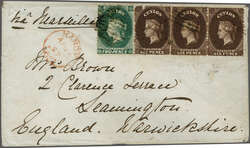 via Marseilles
CEYLON CEYLON CEYLON CEYLON
TWO PENCE SIX PENCE SIX PENCE SIX PENCE
Mrs Brown
2 Clarence Terrace
Leamington
England. Warwickshire.